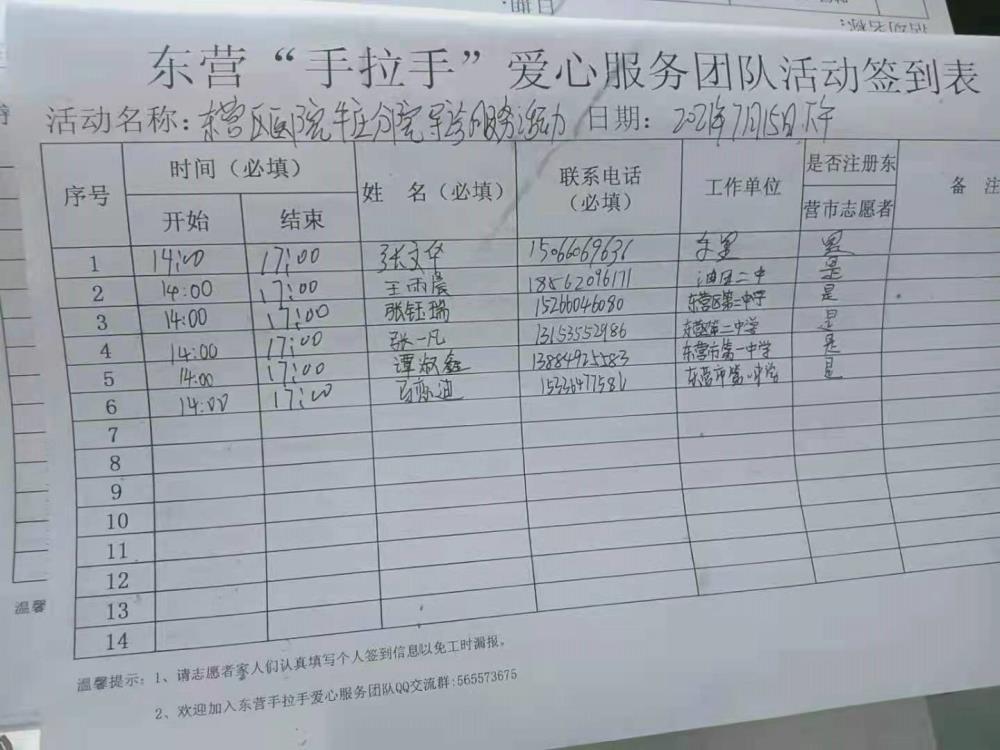 东营“手拉手”爱心服务团队活动签到表
活动名称：东营区医院牛庄分院导诊服务活动 日期：2021年7月15日下午
序号 时间（必填） 姓 名（必填） 联系电话（必填） 工作单位 是否注册东营市志愿者 备 注
开始 结束
1 14:00 17:00 张文华 15066069631 是
2 14:00 17:00 王雨晨 18562096171 油田二中 是
3 14:00 17:00 张钰瑞 15266046080 东营区第二中学 是
4 14:00 17:00 张一凡 13153552986 东营区第二中学 是
5 14:00 17:00 谭淑鑫 13884925583 东营市第一中学 是
6 14:00 17:00 15336477581 东营市第一中学 是
7
8
9
10
11
12
13
14
温馨提示：1、请志愿者家人们认真填写个人签到信息以免工时漏报。
2、欢迎加入东营手拉手爱心服务团队QQ交流群:565573675
温馨
日期: